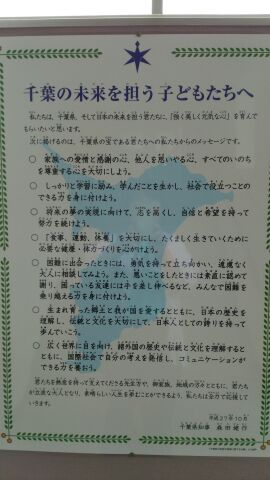 千葉の未来を担う子どもたちへ
私たちは、千葉県、そして日本の未来を担う君たちに、「強く美しく元気な心」を育んで
もらいたいと思います。
次に掲げるのは、千葉県の宝である君たちへの私たちからのメッセージです。
○ 家族への愛情と感謝の心、他人を思いやる心、すべてのいのち
を尊重する心を大切にしよう。
○ しっかりと学習に励み、学んだことを生かし、社会で役立つことの
できる力を身に付けよう。
○ 将来の夢の実現に向けて、志を高くし、自信と希望を持って
努力を続けよう。
○ 「食事、運動、休養」を大切にし、たくましく生きていくために
必要な健康・体力づくりを心がけよう。
○ 困難に出会ったときには、勇気を持って立ち向かい、遠慮なく
大人に相談してみよう。また、悪いことをしたときには素直に認めて
謝り、困っている友達には手を差し伸べるなど、みんなで困難を
乗り越える力を身に付けよう。
○ 生まれ育った郷土と我が国を愛するとともに、日本の歴史を
理解し、伝統と文化を大切にして、日本人としての誇りを持って
歩んでいこう。
○ 広く世界に目を向け、諸外国の歴史や伝統と文化を理解すると
ともに、国際社会で自分の考えを発信し、コミュニケーションが
できる力を養おう。
君たちを熱意を持って支えてくださる先生方や、御家族、地域の方々とともに、君たち
が立派な大人となり、素晴らしい人生を歩むことができるよう、私たちは全力で応援して
いきます。
平成27年10月
千葉県知事 森田健作